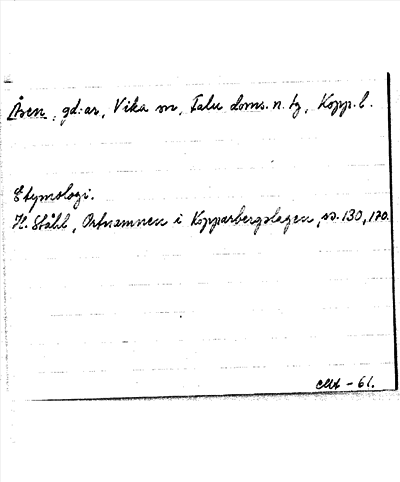 Åsen, gd:ar, Vika sn, Falu doms. n. tg, Kopp. l.
Etymologi.
H. Ståhl, Ortnamnen i Kopparbergslagen, ss. 130, 170.
-61.